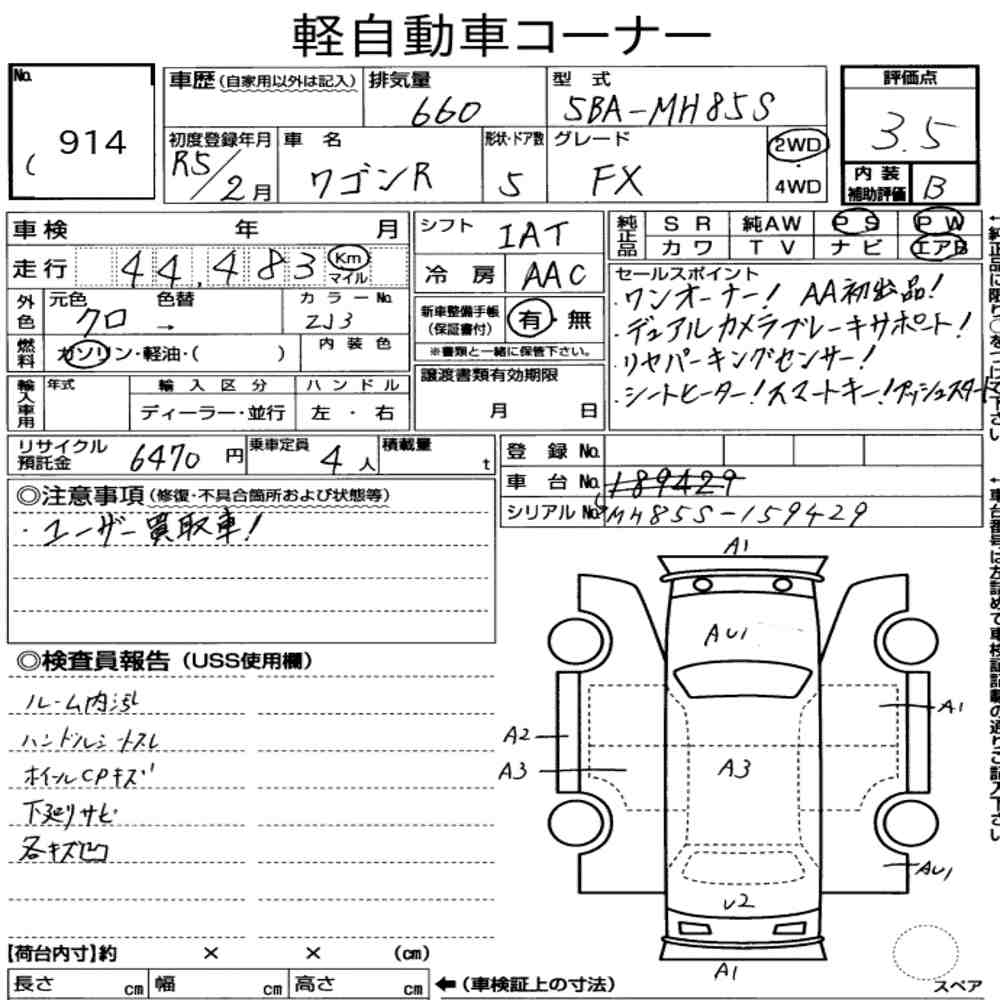 軽自動車コーナー
No. 914
車歴(自家用以外は記入) 排気量 660 型式 5BA-MH85S 評価点 3.5
初度登録年月 R5/2月 車名 ワゴンR 形状・ドア数 5 グレード FX 2WD・4WD 内装補助評価 B
車検 年 月 シフト IAT 純正品 SR 純AW PS PW
カワ TV ナビ エアB
走行 44,483 Km マイル 冷房 AAC
セールスポイント
・ワンオーナー! AA初出品!
・デュアルカメラブレーキサポート!
・リヤパーキングセンサー!
・シートヒーター!スマートキー!プッシュスタート
外色 元色 クロ → 色替 カラーNo. ZJ3
新車整備手帳(保証書付) 有・無
※書類と一緒に保管下さい。
燃料 ガソリン・軽油・( ) 内装色
譲渡書類有効期限
月 日
輸入車用 年式 輸入区分 ハンドル
ディーラー・並行 左・右
リサイクル預託金 6470円 乗車定員 4人 積載量 t
登録No.
車台No. 189429
シリアルNo. MH85S-159429
◎注意事項(修復・不具合箇所および状態等)
・ユーザー買取車!
◎検査員報告(USS使用欄)
ルーム内汚れ
ハンドルシートスレ
ホイルCPキズ
下廻りサビ
各キズ凹
A1
AU1
A1
A2
A3
A3
AU1
U2
A1
スペア
【荷台内寸】約 × × (cm)
長さ cm 幅 cm 高さ cm ←(車検証上の寸法)